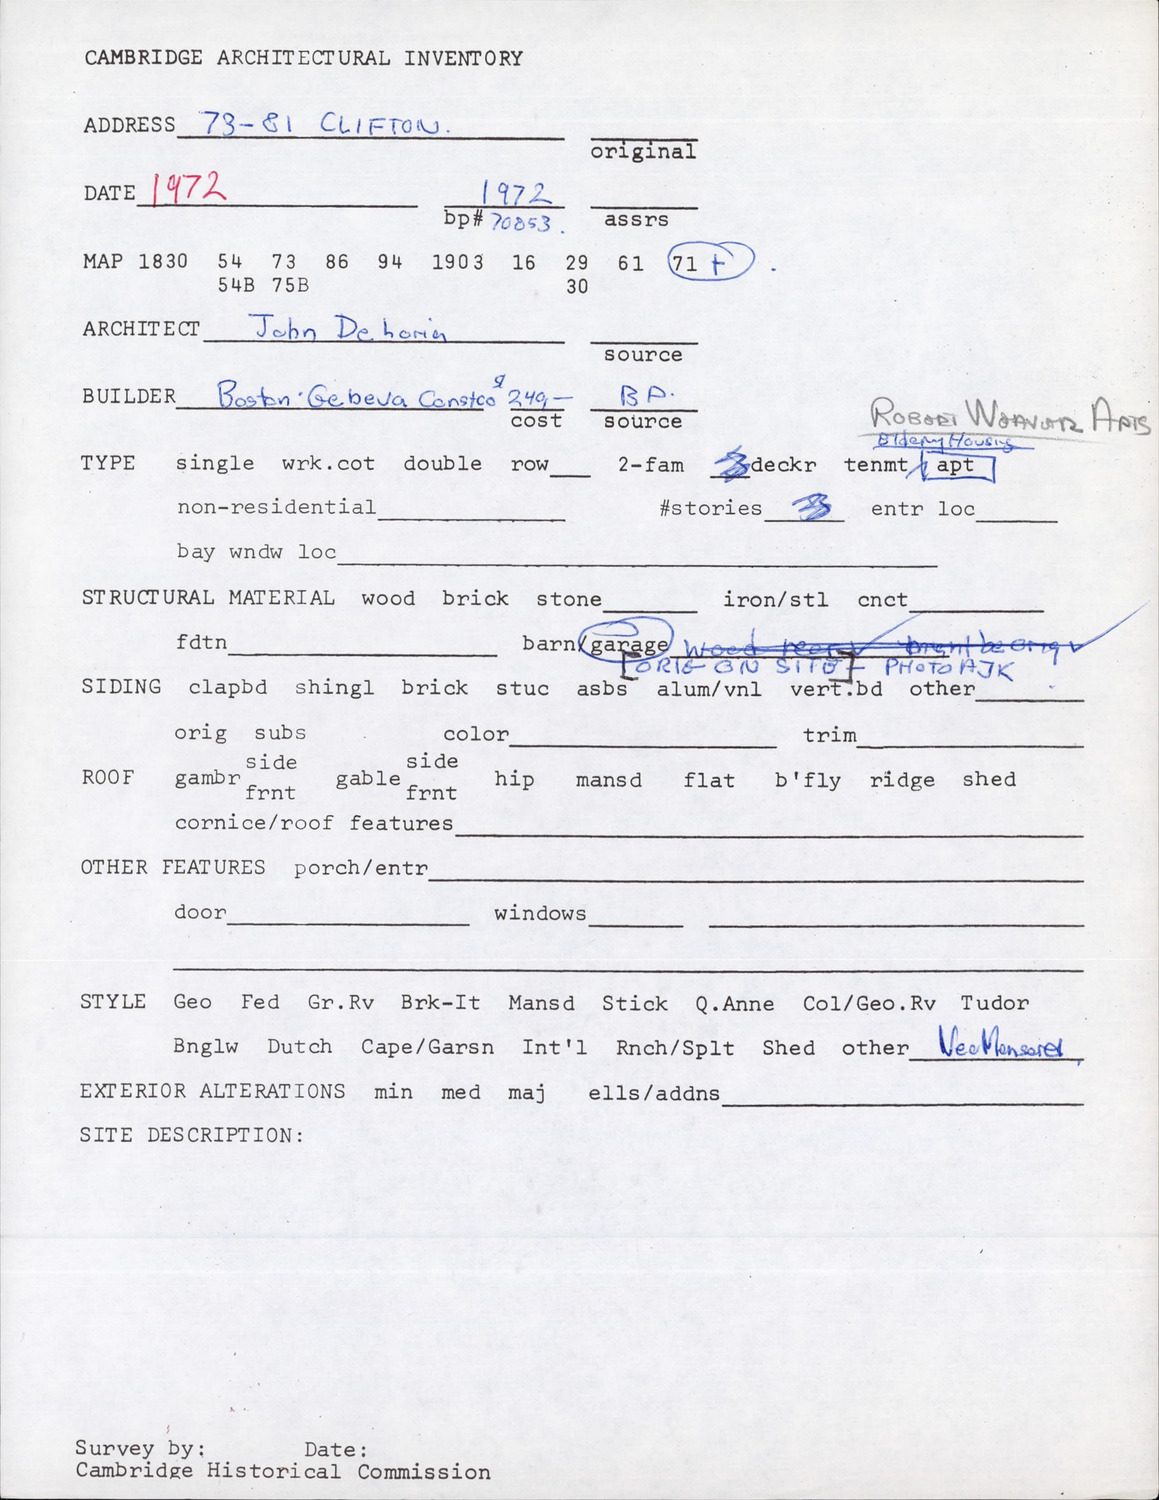 CAMBRIDGE ARCHITECTURAL INVENTORY
ADDRESS 73-81 CLIFTON.
original
DATE 1972 1972
bp# 70853. assrs
MAP 1830 54 73 86 94 1903 16 29 61 71+ .
54B 75B 30
ARCHITECT John
source
BUILDER Boston Constco $249,— B P.
cost source
ROBERT APTS
Elderly Housing
TYPE single wrk.cot double row 2-fam deckr tenmt/ apt
non-residential #stories 3 entr loc
bay wndw loc
STRUCTURAL MATERIAL wood brick stone iron/stl cnct
fdtn barn/garage wood rear
[ORIG ON SITE] - PHOTO AJK
SIDING clapbd shingl brick stuc asbs alum/vnl vert.bd other
orig subs color trim
side side
ROOF gambr gable hip mansd flat b'fly ridge shed
frnt frnt
cornice/roof features
OTHER FEATURES porch/entr
door windows
STYLE Geo Fed Gr.Rv Brk-It Mansd Stick Q.Anne Col/Geo.Rv Tudor
Bnglw Dutch Cape/Garsn Int'l Rnch/Splt Shed other NeoMansard
EXTERIOR ALTERATIONS min med maj ells/addns
SITE DESCRIPTION:
Survey by: Date:
Cambridge Historical Commission